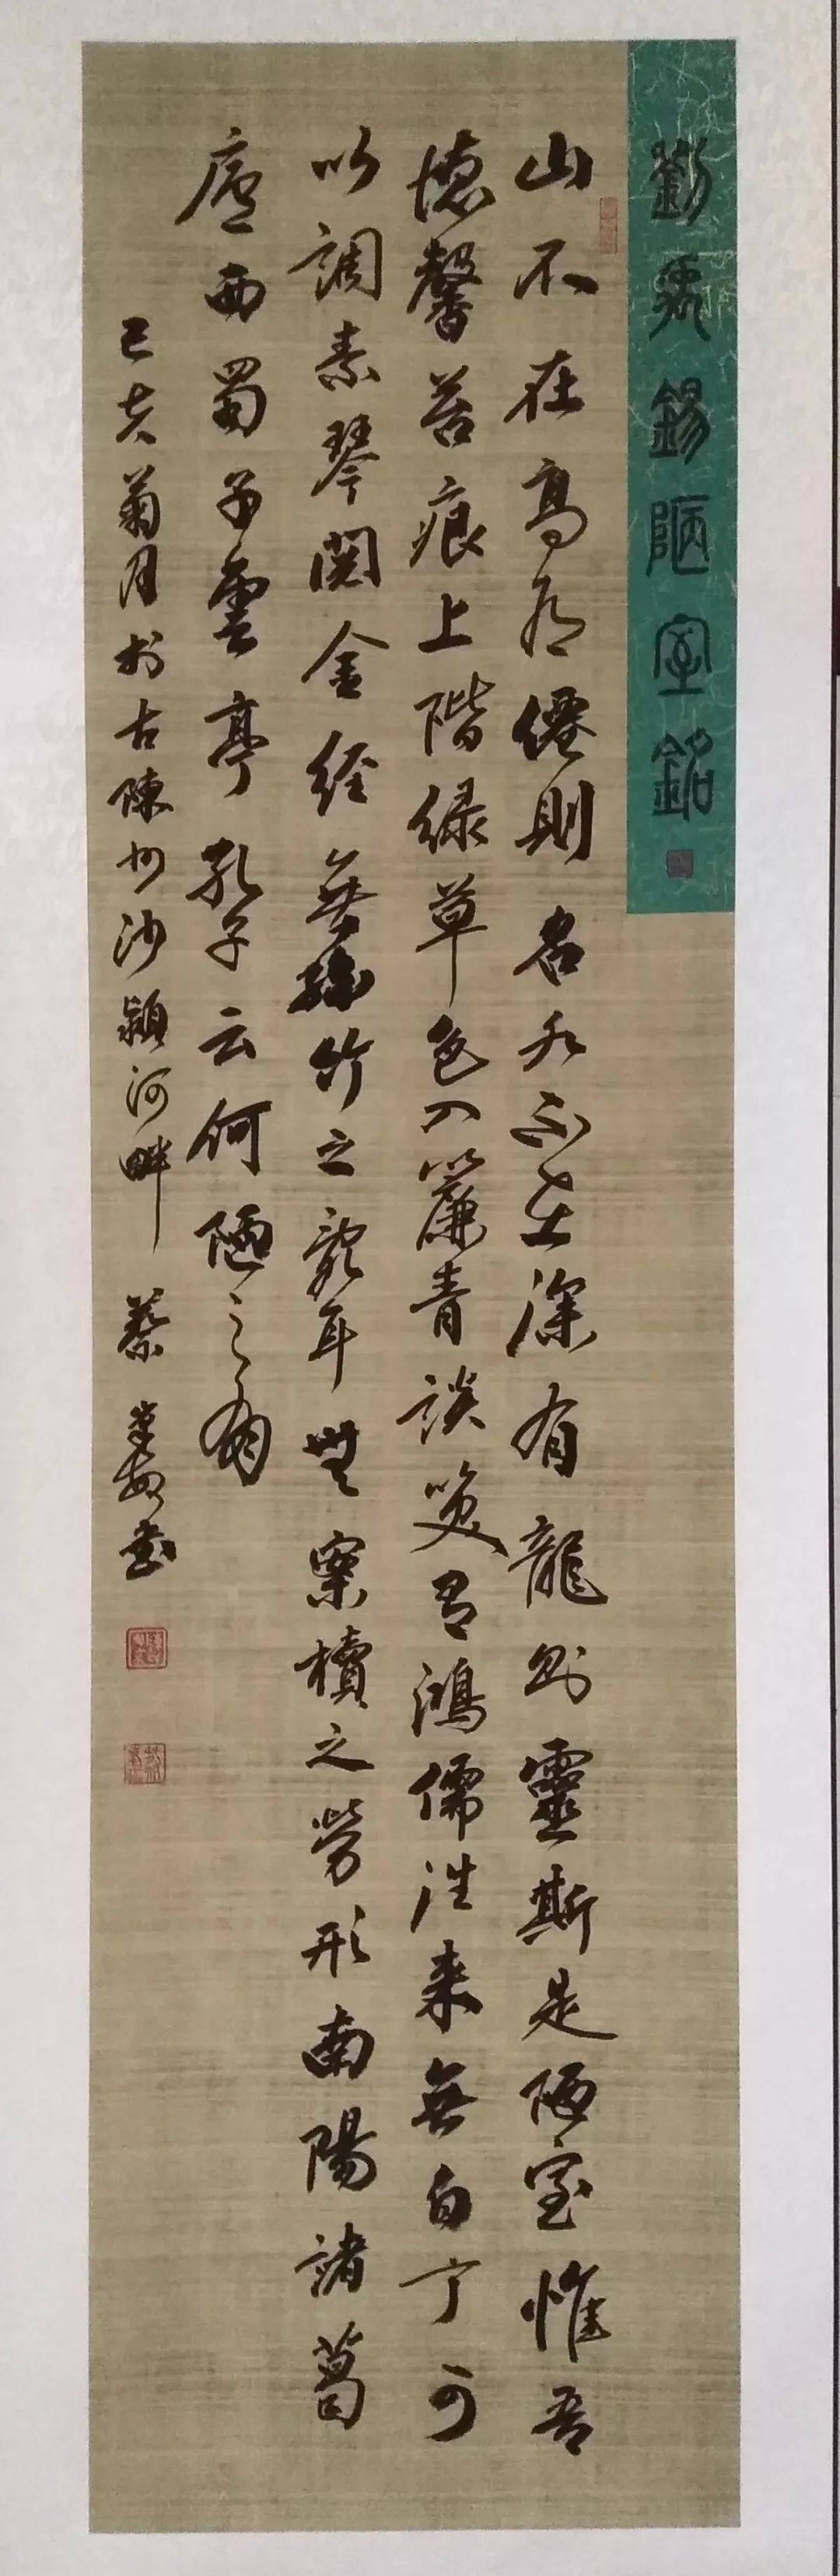 劉禹錫陋室銘
山不在高有僊則名水不在深有龍則靈斯是陋室惟吾
德馨苔痕上階綠草色入簾青談笑有鴻儒往来無白丁可
以調素琴閱金經無絲竹之亂耳無案牘之勞形南陽諸葛
廬西蜀子雲亭孔子云何陋之有
己亥菊月於古陳州沙潁河畔 蔡